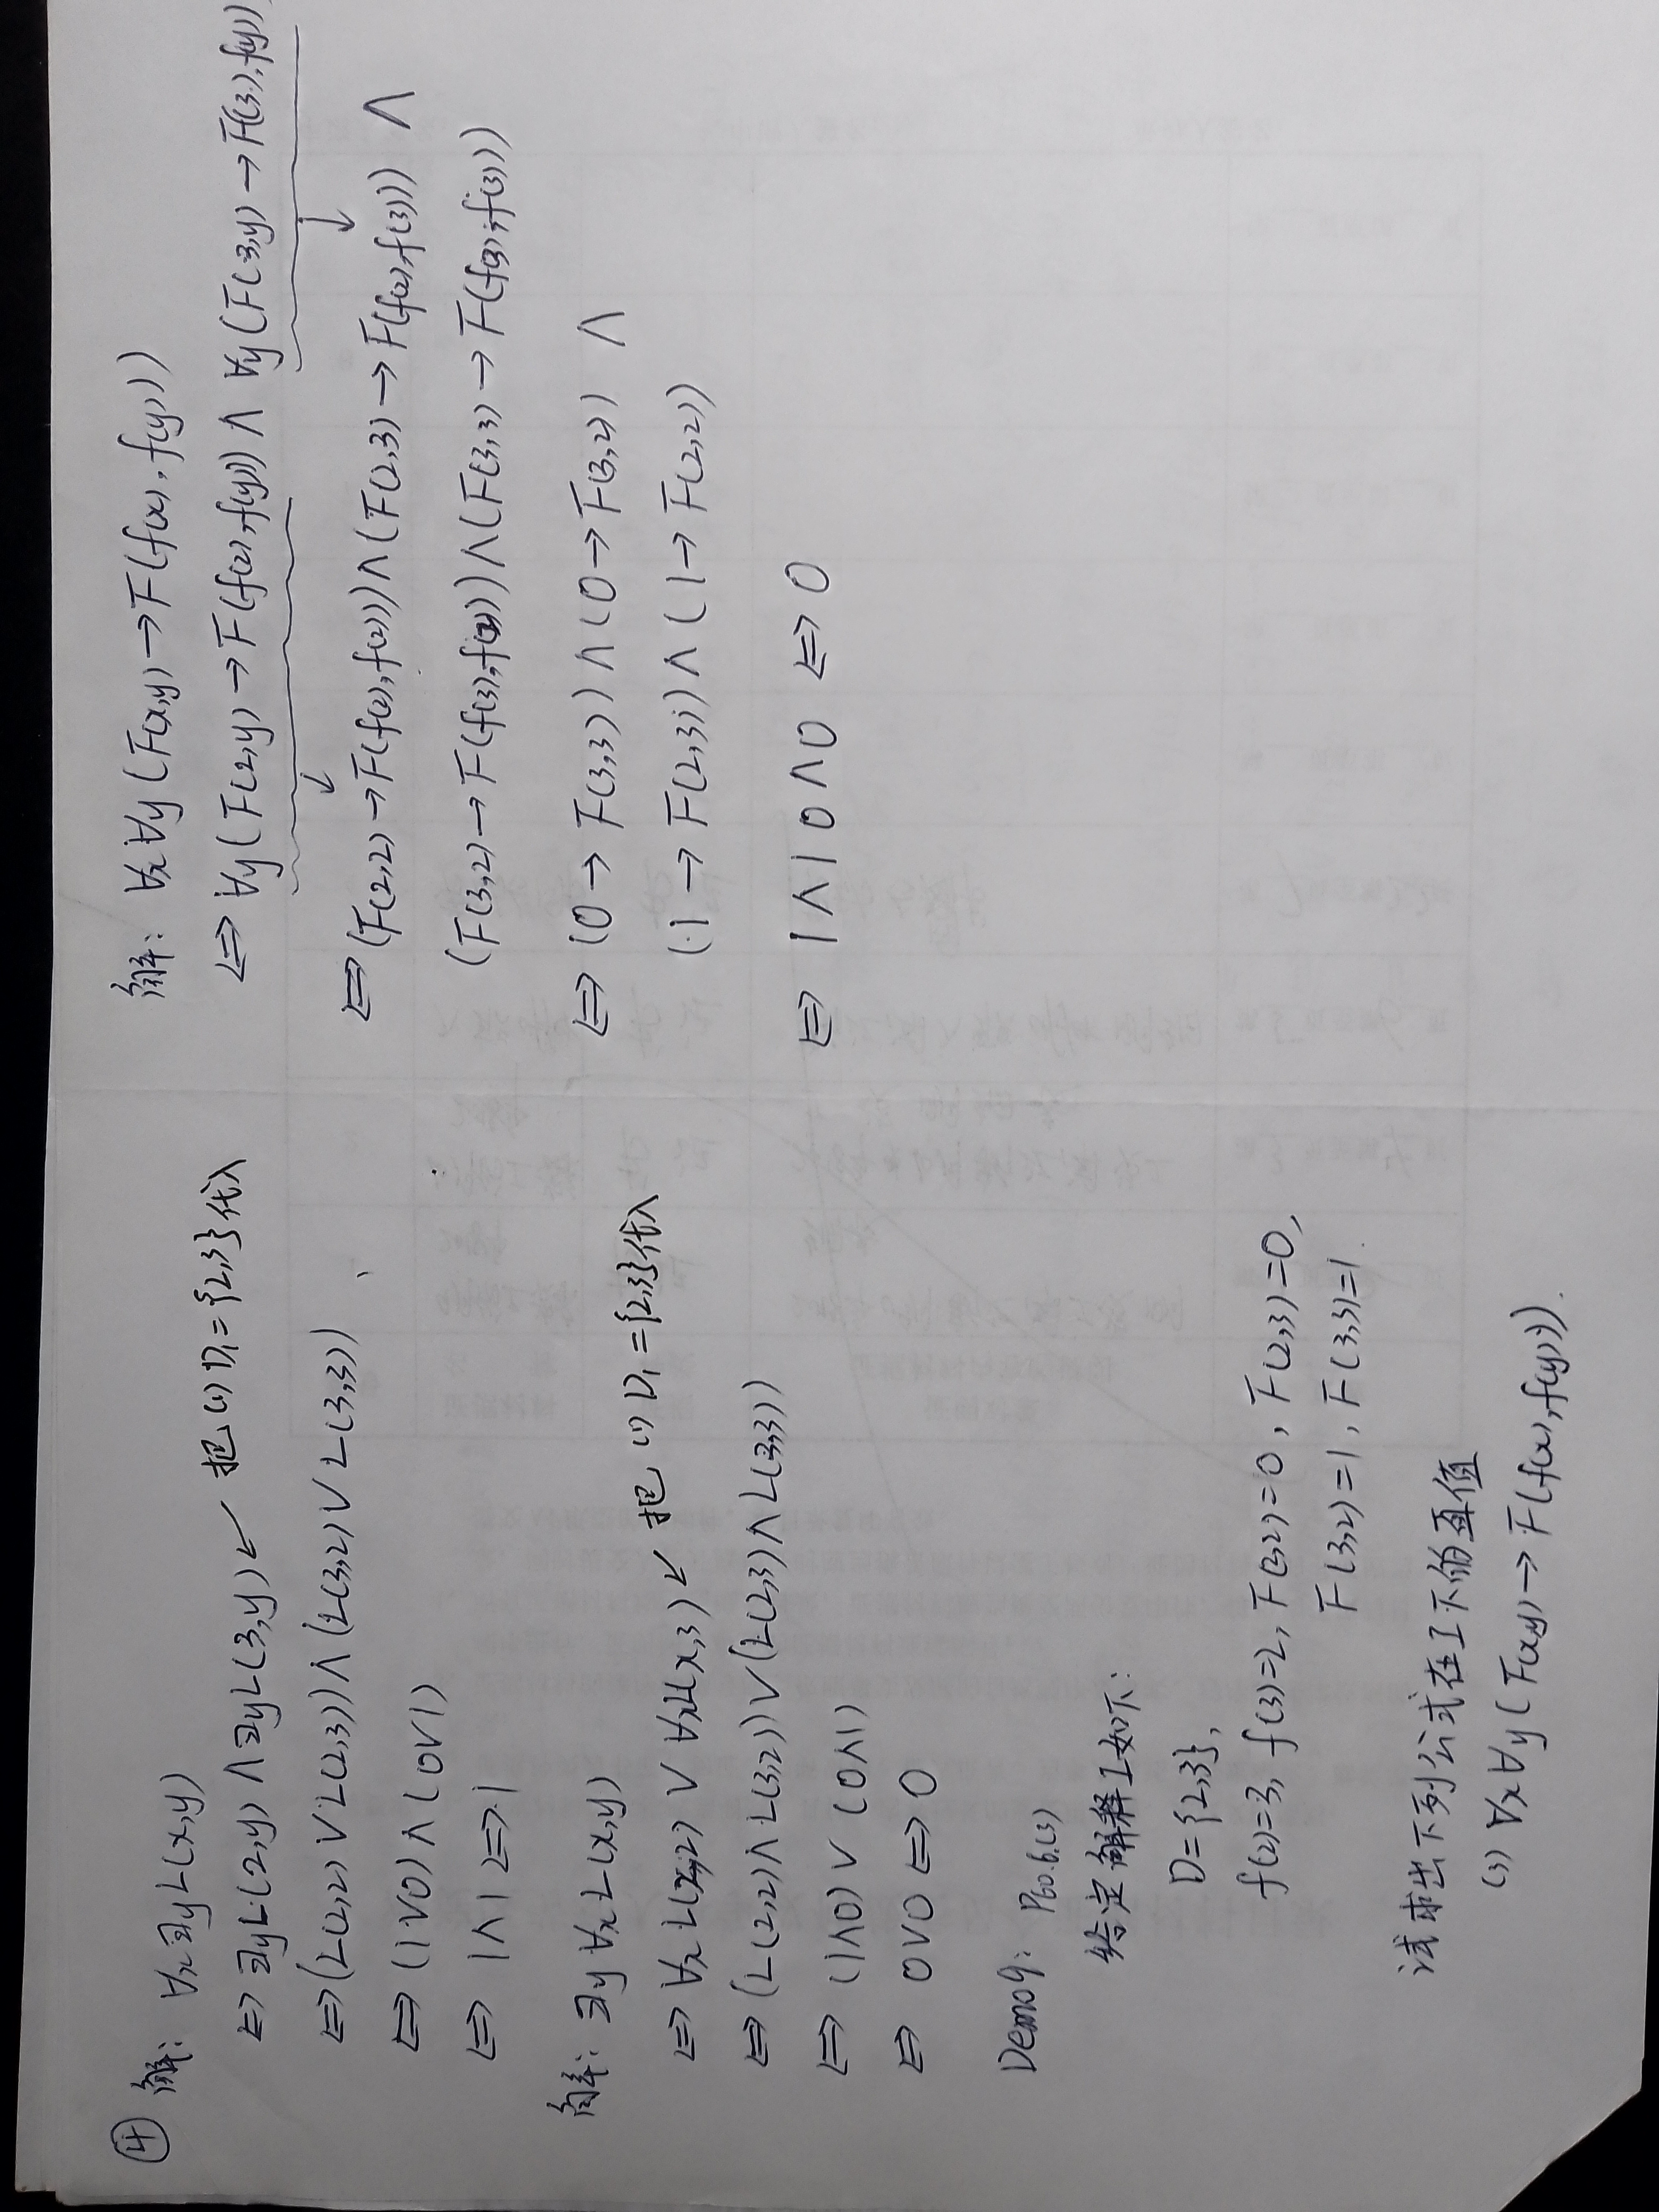 ④ 解: ∀x∃yL(x,y)
⇔ ∃yL(2,y) ∧ ∃yL(3,y) ↙ 把(1) D₁={2,3}代入
⇔ (L(2,2) ∨ L(2,3)) ∧ (L(3,2) ∨ L(3,3))
⇔ (1∨0) ∧ (0∨1)
⇔ 1∧1 ⇔ 1
解: ∃y∀xL(x,y)
⇔ ∀xL(x,2) ∨ ∀xL(x,3) ↙ 把(1) D₁={2,3}代入
⇔ (L(2,2)∧L(3,2))∨(L(2,3)∧L(3,3))
⇔ (1∧0) ∨ (0∧1)
⇔ 0∨0 ⇔ 0
Demo9: P60.6.(3)
给定解释I如下:
D={2,3},
f(2)=3, f(3)=2, F(3,2)=0, F(2,3)=0,
F(3,2)=1, F(3,3)=1.
试求出下列公式在I下的真值
(3) ∀x∀y(F(x,y)→F(f(x),f(y))).
解: ∀x∀y(F(x,y)→F(f(x),f(y)))
⇔ ∀y(F(2,y)→F(f(2),f(y))) ∧ ∀y(F(3,y)→F(f(3),f(y))
⇔ (F(2,2)→F(f(2),f(2)))∧(F(2,3)→F(f(2),f(3))) ∧
(F(3,2)→F(f(3),f(2)))∧(F(3,3)→F(f(3),f(3)))
⇔ (0→F(3,3))∧(0→F(3,2)) ∧
(1→F(2,3))∧(1→F(2,2))
⇔ 1∧1 0∧0 ⇔ 0